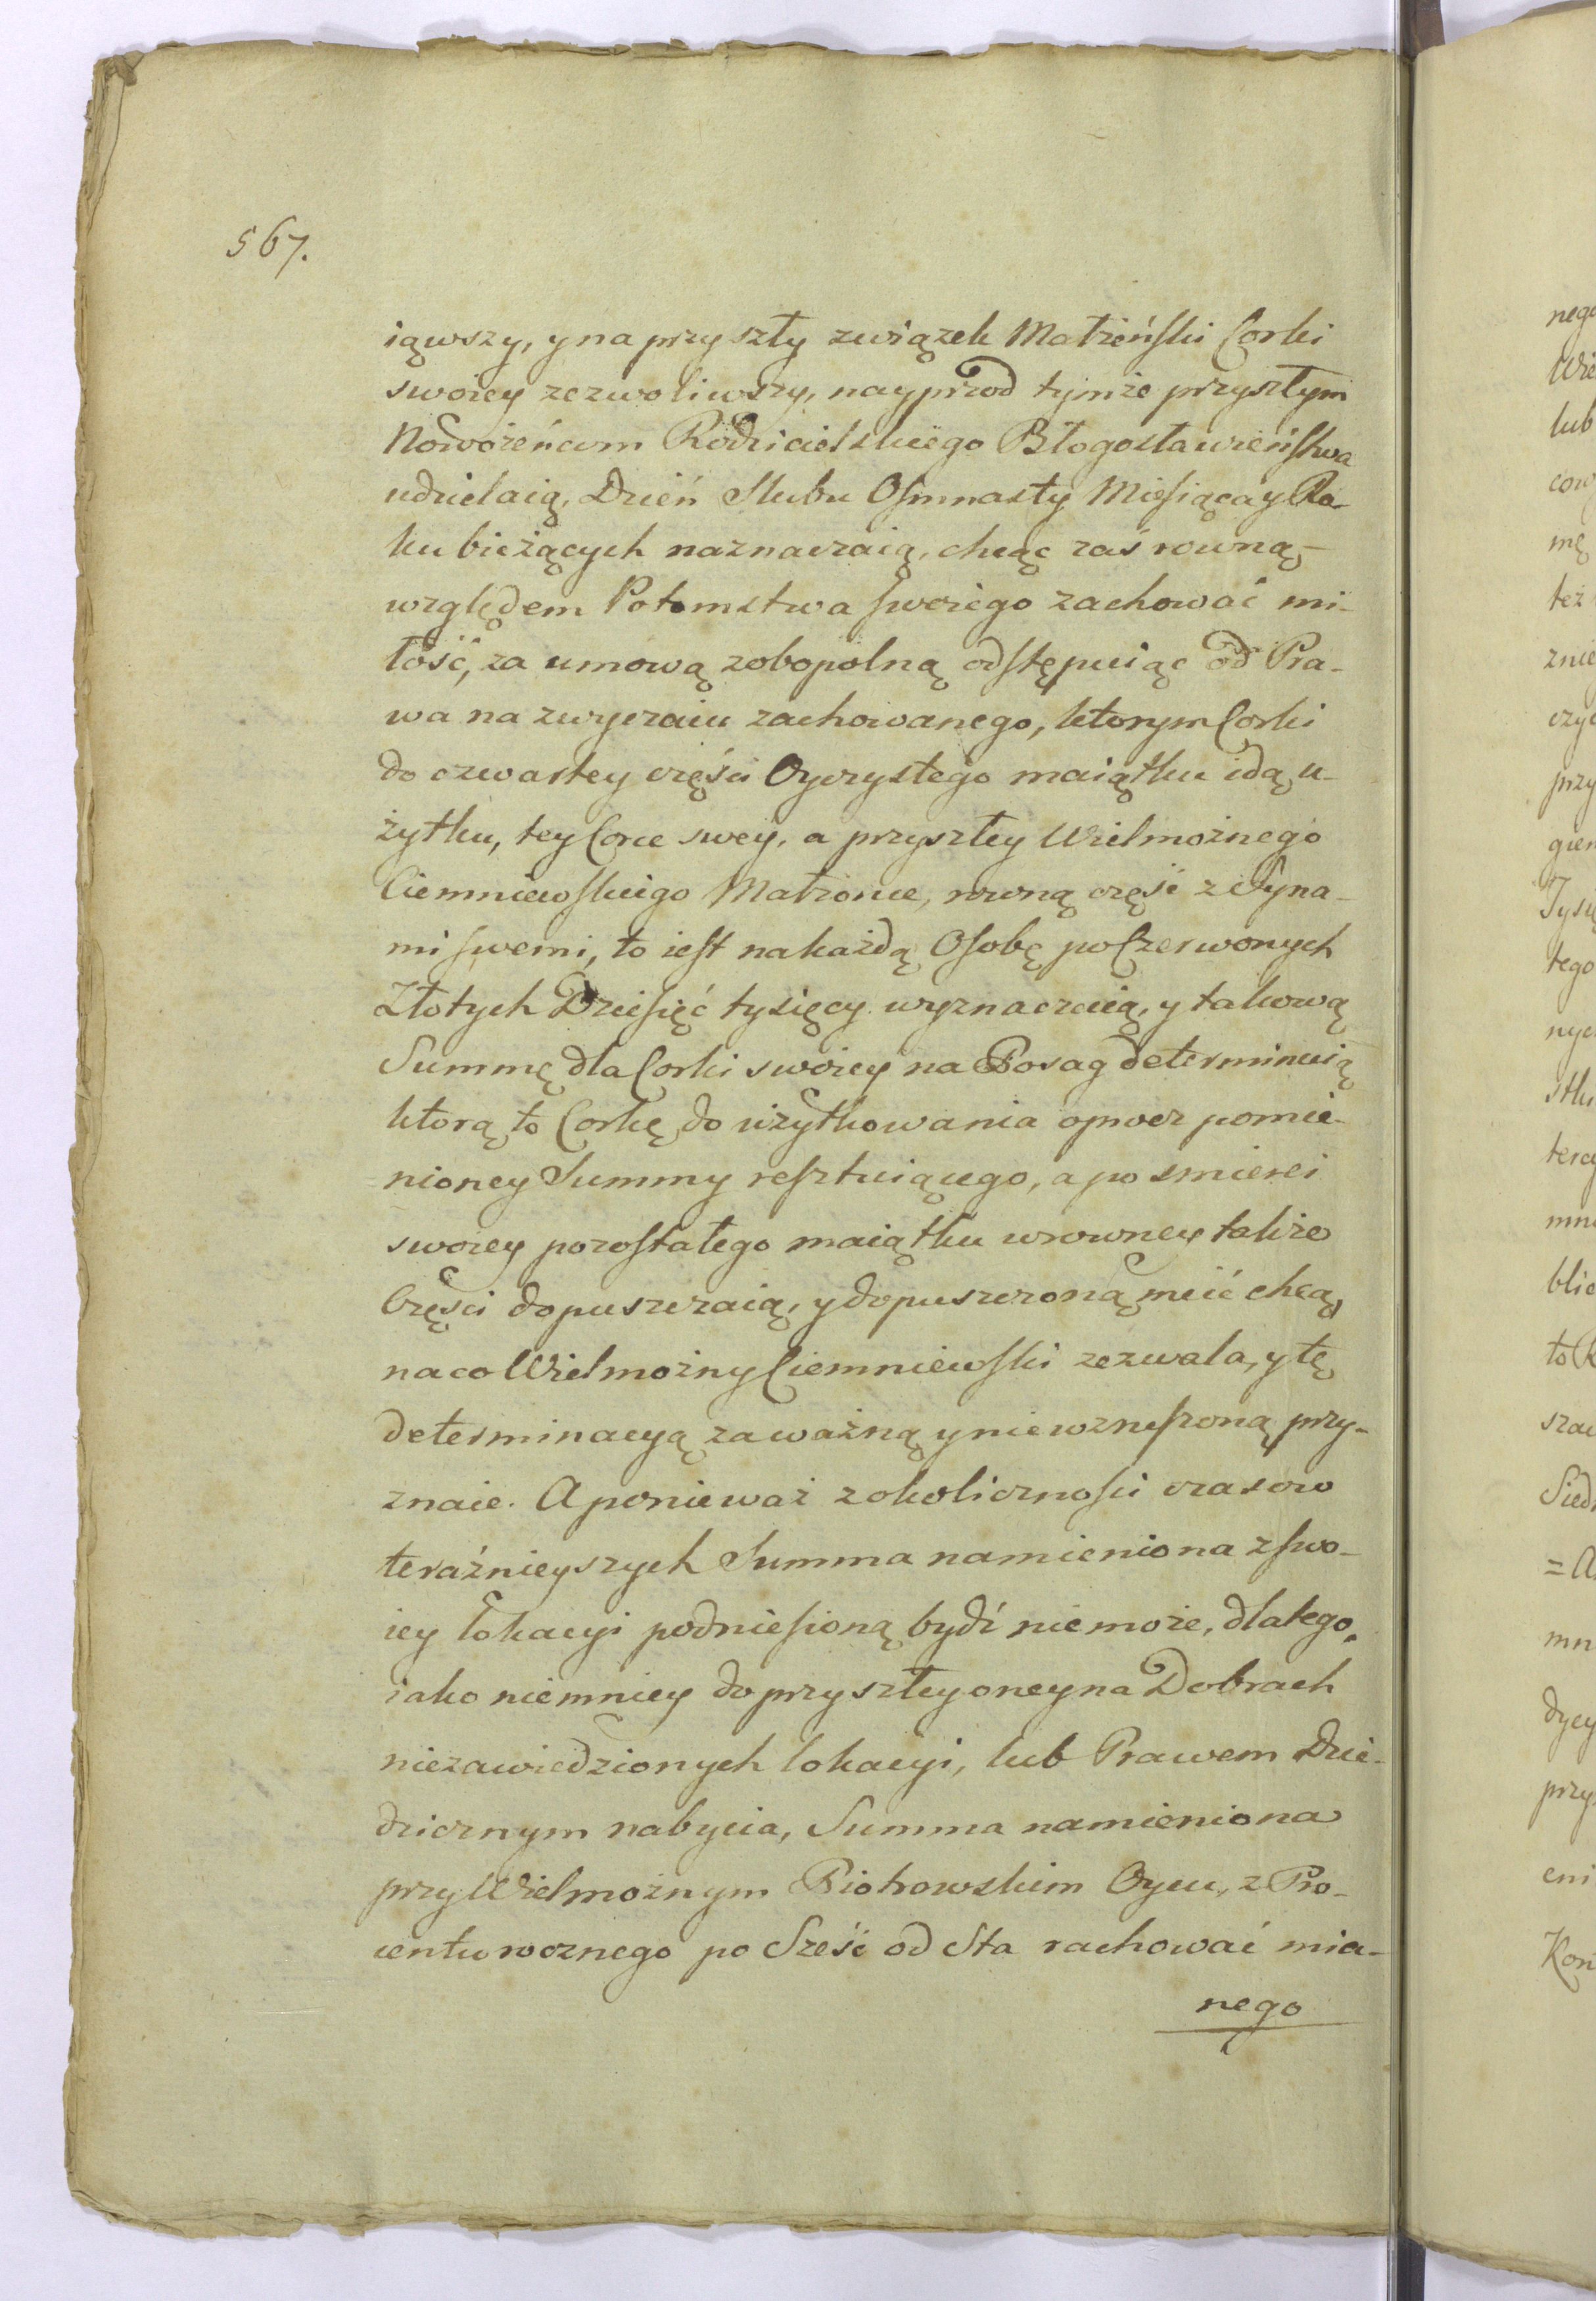 567.
iąwszy, y na przyszły związek Małżeński Corki
swoiey zezwoliwszy, nayprzod tymże przyszłym
Nowożeńcom Rodzicielskiego Błogosławieństwa
udzielaią, Dzień Slubu Osmnasty Miesiąca y Ro-
ku bieżących naznaczaią, chcąc zaś rowną
względem Potomstwa swoiego zachować mi-
łość, za umową zobopolną odstępuiąc od Pra-
wa na zwyczaiu zachowanego, ktorym Corki
do czwartey części Oyczystego maiątku idą u-
żytku, tey Corce swey, a przyszłey Wielmożnego
Ciemniewskiego Małżonce, rowną część z Syna-
mi swemi, to iest na każdą Osobę po Czerwonych
Złotych Dziesięć tysięcy wyznaczaią, y takową
Summę dla Corki swoiey na Posag determinuią
ktorą to Corkę do użytkowania oprocz pomie-
nioney Summy resztuiącego, a po smierci
swoiey pozostałego maiątku w rowney także
Części dopuszczaią, y dopuszczoną mieć chcą,
na co Wielmożny Ciemniewski zezwala, y tę
determinacyą za ważną y niewzruszoną przy-
znaie. A ponieważ z okoliczności czasow
teraźnieyszych Summa namieniona z swo-
iey lokacyi podniesioną bydź nie może, dla tego,
iako niemniey do przyszłey oney na Dobrach
niezawiedzionych lokacyi, lub Prawem Dzie-
dzicznym nabycia, Summa namieniona
przy Wielmożnym Piotrowskim Oycu, z Pro-
centu rocznego po Sześć od Sta rachować mia-
nego